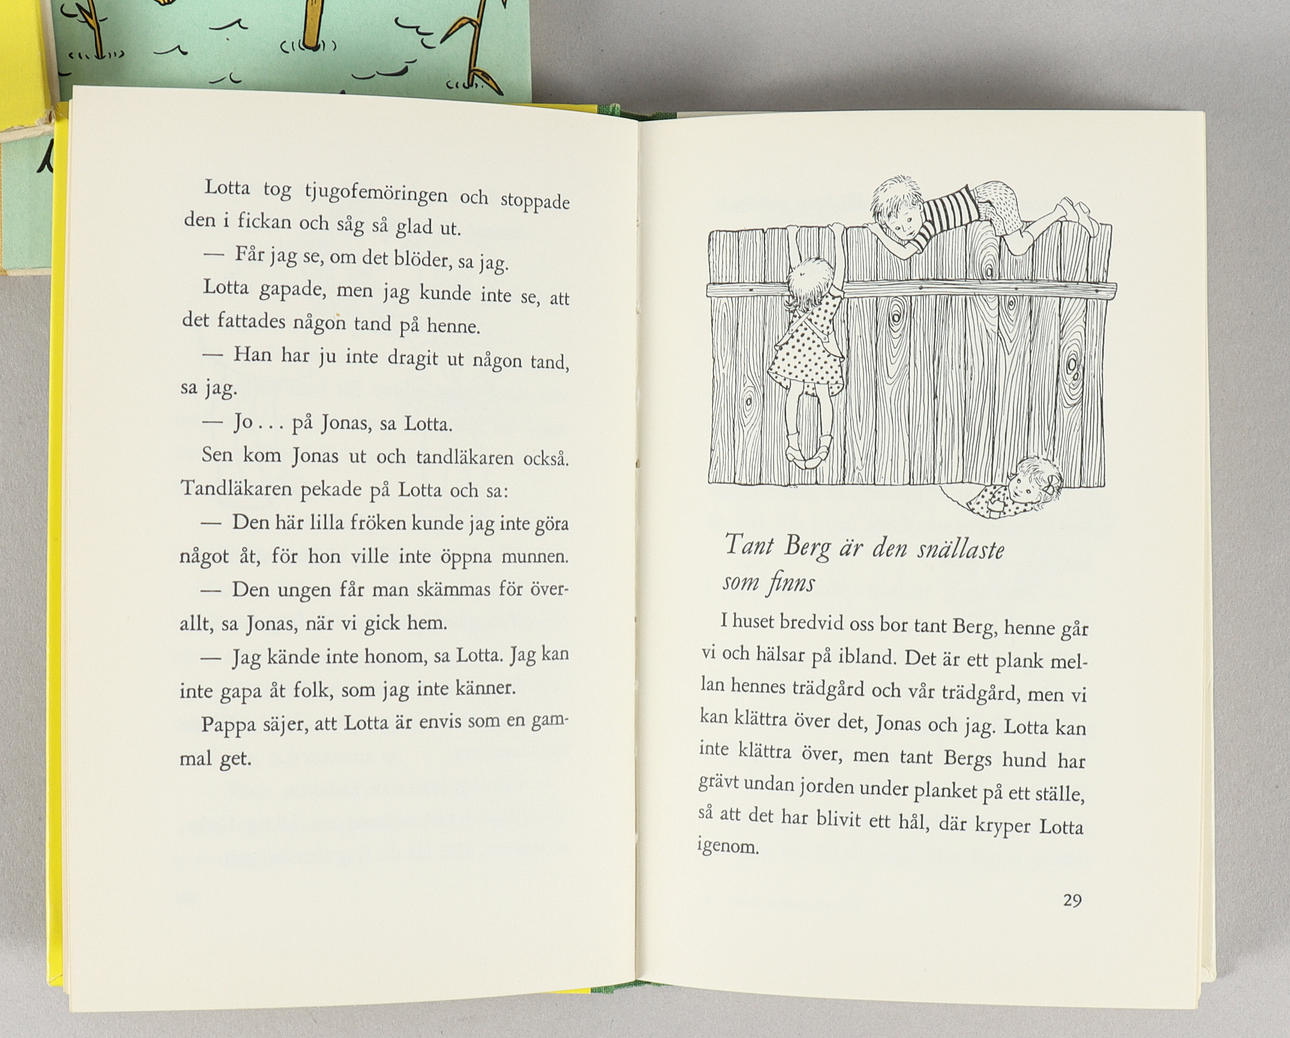 Lotta tog tjugofemöringen och stoppade
den i fickan och såg så glad ut.
— Får jag se, om det blöder, sa jag.
Lotta gapade, men jag kunde inte se, att
det fattades någon tand på henne.
— Han har ju inte dragit ut någon tand,
sa jag.
— Jo... på Jonas, sa Lotta.
Sen kom Jonas ut och tandläkaren också.
Tandläkaren pekade på Lotta och sa:
— Den här lilla fröken kunde jag inte göra
något åt, för hon ville inte öppna munnen.
— Den ungen får man skämmas för över-
allt, sa Jonas, när vi gick hem.
— Jag kände inte honom, sa Lotta. Jag kan
inte gapa åt folk, som jag inte känner.
Pappa säjer, att Lotta är envis som en gam-
mal get.
Tant Berg är den snällaste
som finns
I huset bredvid oss bor tant Berg, henne går
vi och hälsar på ibland. Det är ett plank mel-
lan hennes trädgård och vår trädgård, men vi
kan klättra över det, Jonas och jag. Lotta kan
inte klättra över, men tant Bergs hund har
grävt undan jorden under planket på ett ställe,
så att det har blivit ett hål, där kryper Lotta
igenom.
29